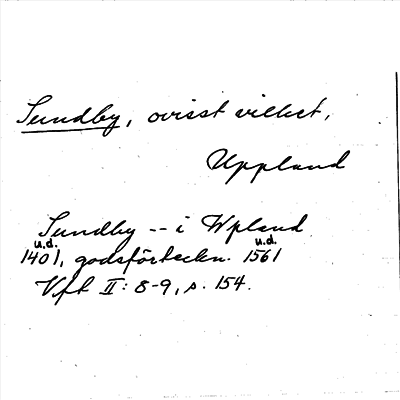 Sundby, ovisst vilket,
Uppland
Sundby -- i Wpland
u.d. u.d.
1401, godsförteckn. 1561
Vft II: 8-9, s. 154.